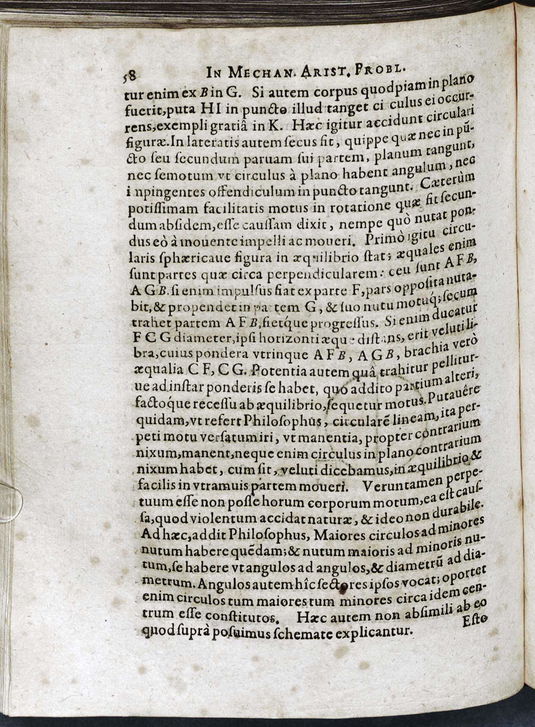 58 IN MECHAN. ARIST. PROBL.
tur enim ex B in G. Si autem corpus quodpiam in plano
fuerit, puta HI in puncto illud tanget ci culus ei occur-
rens, exempli gratiâ in K. Hæc igitur accidunt circulari
figuræ. In lateratis autem secus fit, quippe quæ nec in pũ-
cto seu secundum paruam sui partem, planum tangunt,
nec semotum vt circulus à plano habent angulum, nec
i npingentes offendiculum in puncto tangunt. Cæterùm
potissimam facilitatis motus in rotatione quæ fit secun-
dum absidem, esse caussam dixit, nempe quò nutat pon-
dus eò à mouente impelli ac moueri. Primò igitu circu-
laris sphæricaue figura in æquilibrio stat; æquales enim
sunt partes quæ circa perpendicularem: ceu sunt AFB,
AGB. si enim impulsus fiat ex parte F, pars opposita nuta-
bit, & propendet in pa tem G, & suo nutu motuq; secum
trahet partem AFB, fietque progressus. Si enim ducatur
FCG diameter, ipsi horizonti æque distans, erit veluti li-
bra, cuius pondera vtrinque AFB, AGB, brachia verò
æqualia CF, CG. Potentia autem quâ trahitur pellitur-
ue ad instar ponderis se habet, quo addito partium alteri,
factoque recessu ab æquilibrio, sequetur motus. Putauêre
quidam, vt refert Philosophus, circularẽ lineam, ita per-
peti motu versatum iri, vt manentia, propter contrarium
nixum, manent, neque enim circulus in plano contrarium
nixum habet, cum sit, veluti dicebamus, in æquilibrio &
facilis in vtramuis partem moueri. Veruntamen perpe-
tuum esse non posse horum corporum motum, ea est caus-
sa, quod violentum accidat naturæ, & ideo non durabile.
Ad hæc, addit Philosophus, Maiores circulos ad minores
nutum habere quẽdam; & nutum maioris ad minoris nu-
tum, se habere vt angulos ad angulos, & diametrũ ad dia-
metrum. Angulos autem hîc sectores ipsos vocat; oportet
enim circulos tum maiores tum minores circa idem cen-
trum esse constitutos. Hæc autem non absimili ab eo
quod suprà posuimus schemate explicantur.
Esto